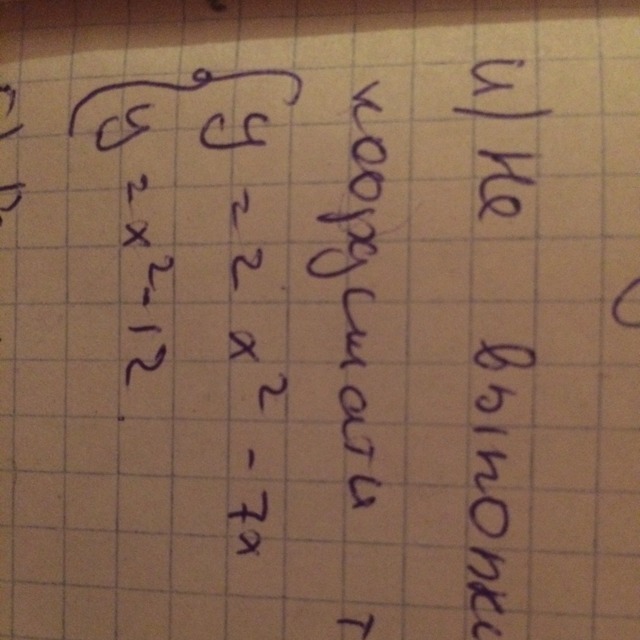 и) Не выполн
координаты т
y = 2x² - 7x
y = x² - 12